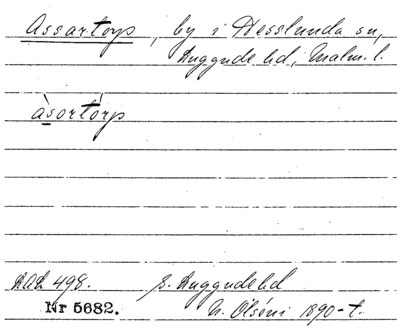 Assartorp, by i Hesslunda sn,
Luggude hd, Malm. l.
àsortórp
LAL 498. S. Luggude hd
Nr 5682. N. Olséni 1890-t.